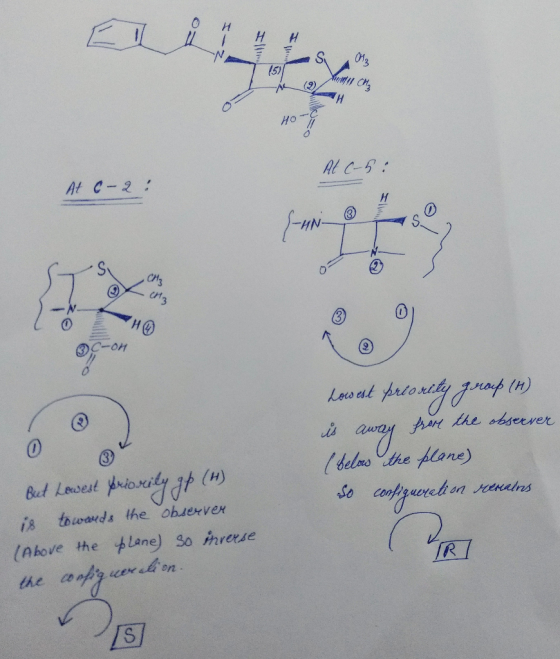 O H H H
N
S CH3
(5)
(2) CH3
N H
O
HO-C
O
At C-2 :
At C-5 :
H
③ S ①
-HN
N
O ②
S
② CH3
CH3
N H ④
①
③ C-OH
O
③ ①
②
①
②
③
Lowest priority group (H)
is away from the observer
(below the plane)
So configuration remains
R
But Lowest priority gp (H)
is towards the observer
(Above the plane) So inverse
the configuration.
S